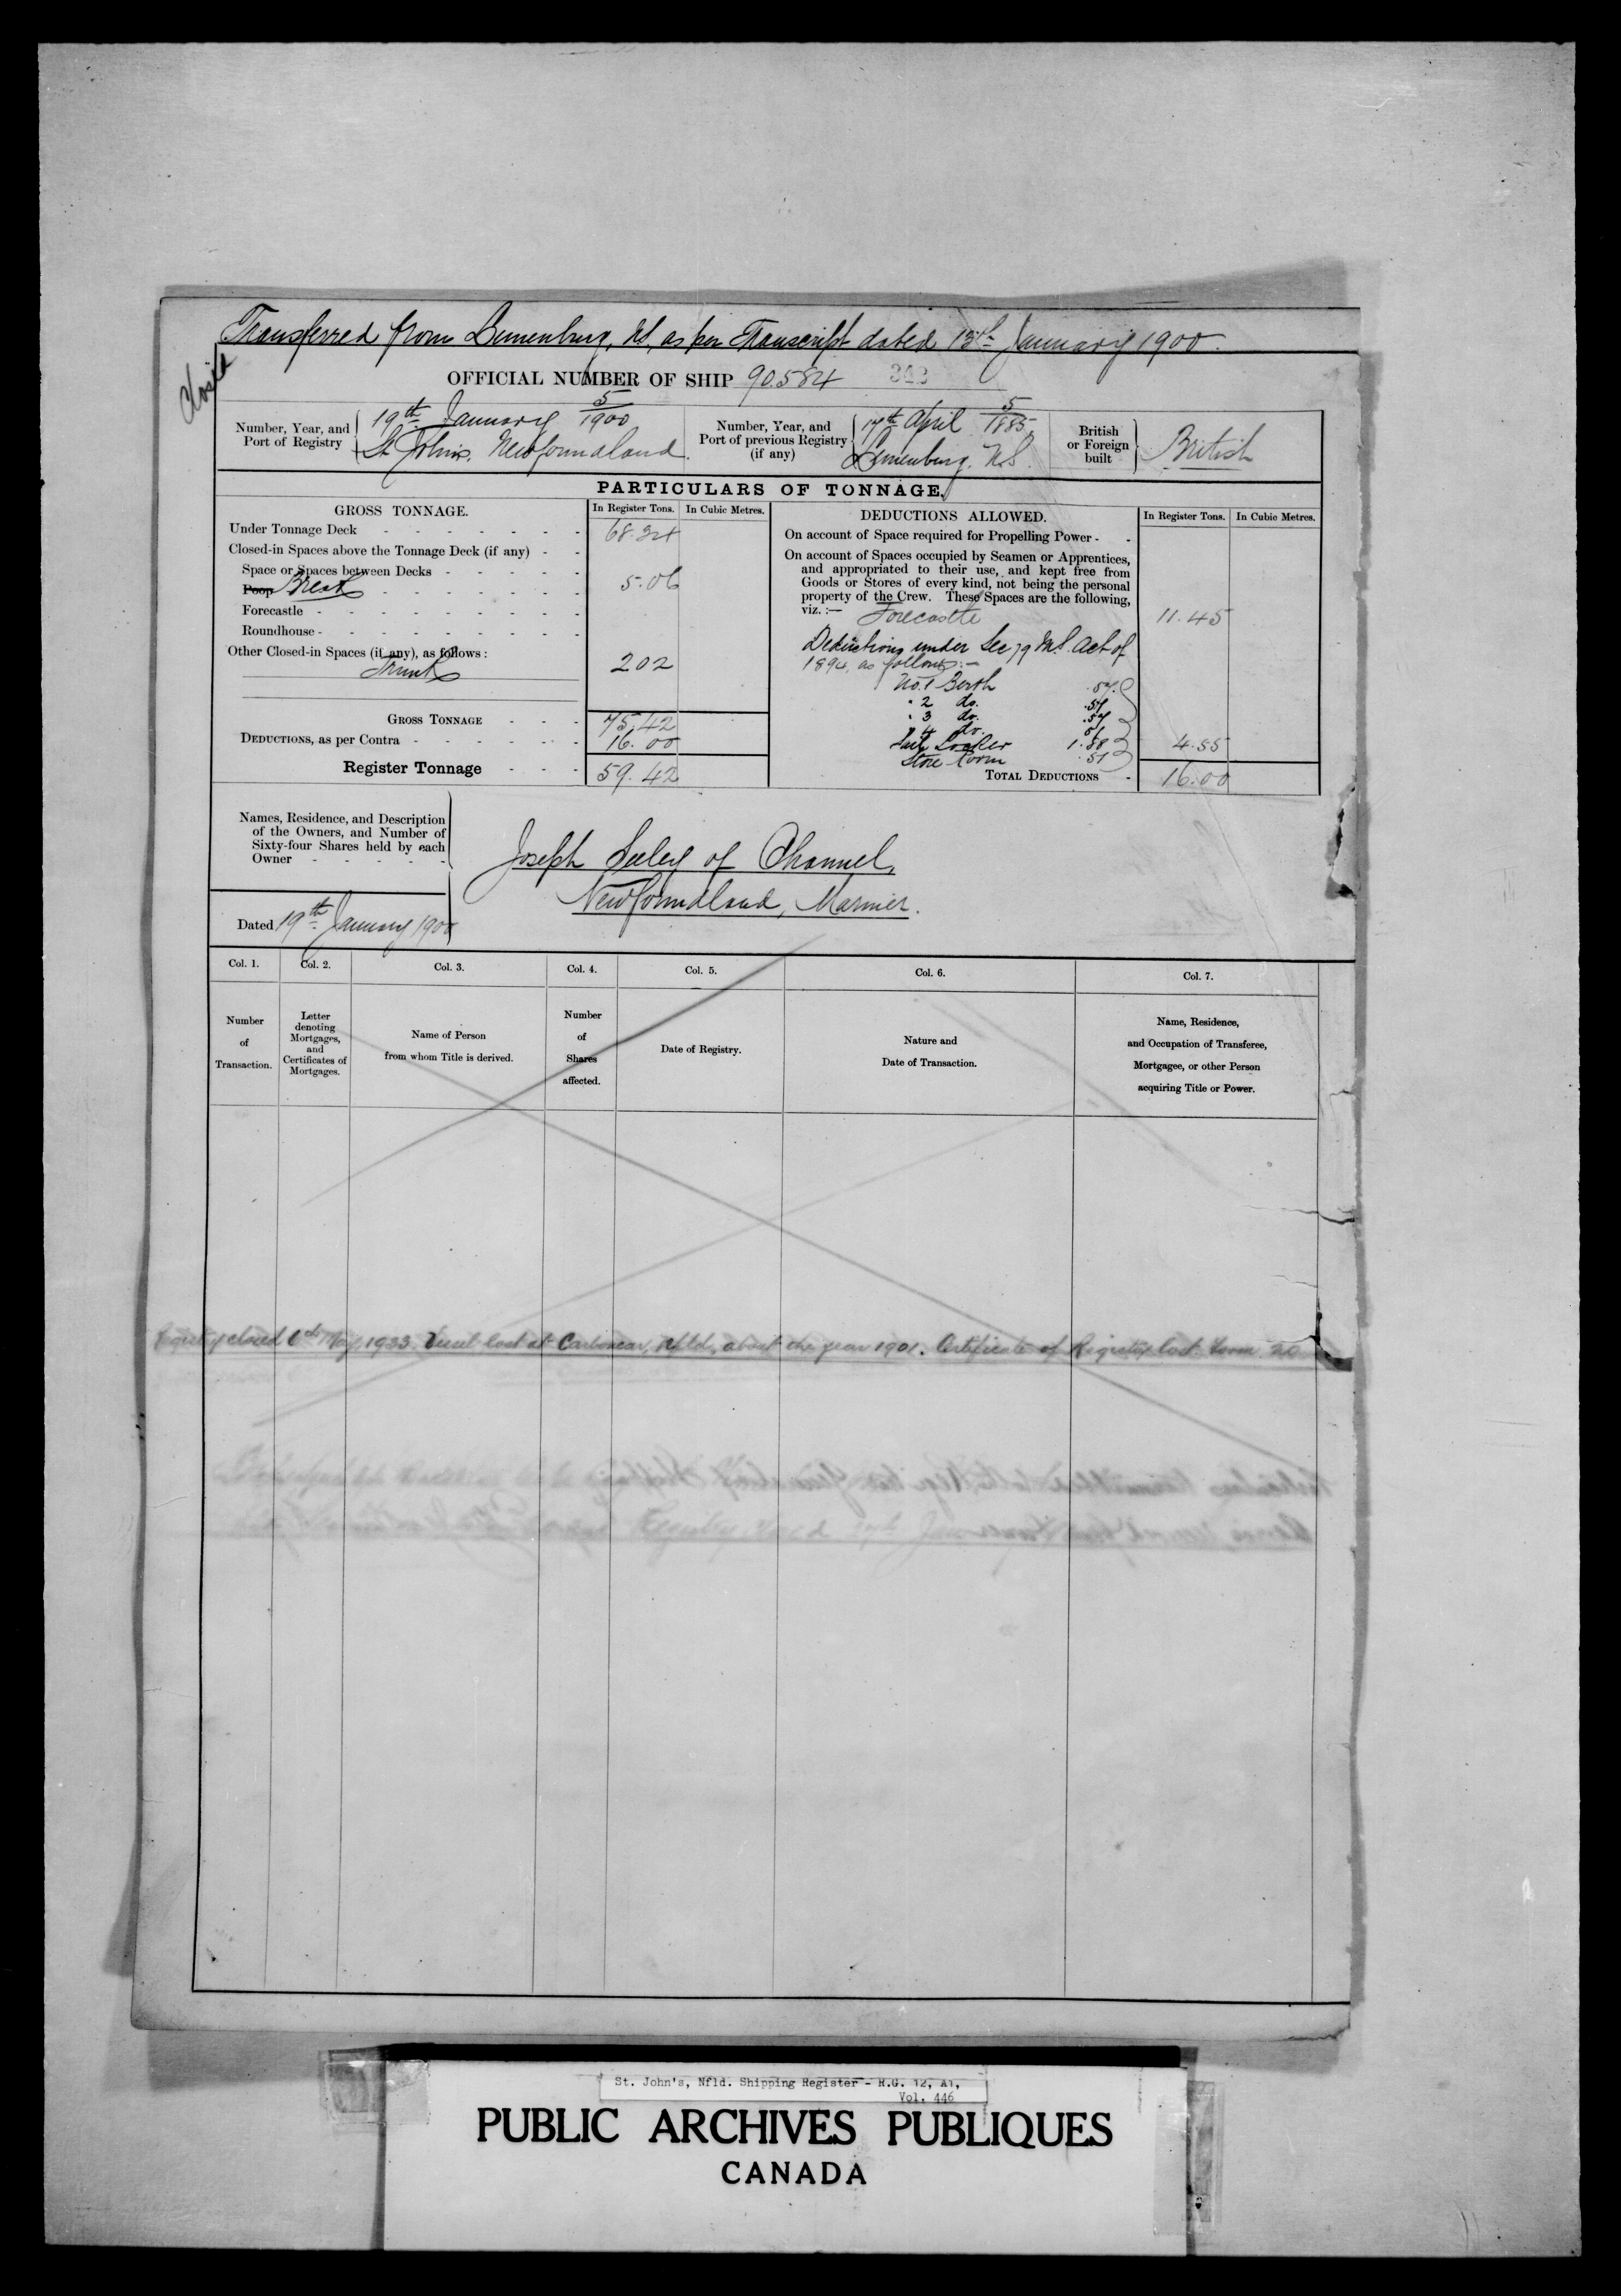 Transferred from Lunenburg, NS, as per Transcript dated 13th January 1900.
Closed
OFFICIAL NUMBER OF SHIP 90584 342
Number, Year, and Port of Registry
5/1900
19th January
St John's, Newfoundland.
Number, Year, and Port of previous Registry (if any)
5/1885
17th April
Lunenburg, N.S.
British or Foreign built
British
PARTICULARS OF TONNAGE.
GROSS TONNAGE. In Register Tons. In Cubic Metres.
Under Tonnage Deck 68.34
Closed-in Spaces above the Tonnage Deck (if any)
Space or Spaces between Decks
Poop Break 5.06
Forecastle
Roundhouse
Other Closed-in Spaces (if any), as follows:
Trunk 2 02
GROSS TONNAGE 75.42
DEDUCTIONS, as per Contra 16.00
Register Tonnage 59.42
DEDUCTIONS ALLOWED. In Register Tons. In Cubic Metres.
On account of Space required for Propelling Power
On account of Spaces occupied by Seamen or Apprentices,
and appropriated to their use, and kept free from
Goods or Stores of every kind, not being the personal
property of the Crew. These Spaces are the following,
viz.:—
Forecastle 11.45
Deductions under Sec 79 M.S. Act of
1894, as follows:—
No. 1 Berth
" 2 do.
" 3 do.
" 4 do.
Sail Locker 1.88 4.55
Store Room .51
TOTAL DEDUCTIONS 16.00
Names, Residence, and Description
of the Owners, and Number of
Sixty-four Shares held by each
Owner
Joseph Seeley of Channel,
Newfoundland, Mariner.
Dated 19th January 1900
Col. 1. Col. 2. Col. 3. Col. 4. Col. 5. Col. 6. Col. 7.
Number of Transaction.
Letter denoting Mortgages, and Certificates of Mortgages.
Name of Person from whom Title is derived.
Number of Shares affected.
Date of Registry.
Nature and Date of Transaction.
Name, Residence, and Occupation of Transferee, Mortgagee, or other Person acquiring Title or Power.
Registry closed May, 1933. Vessel lost at Carbonear, Nfld., about the year 1901. Certificate of Registry lost. Form 20
St. John's, Nfld. Shipping Register - R.G. 12, A1,
Vol. 446
PUBLIC ARCHIVES PUBLIQUES
CANADA